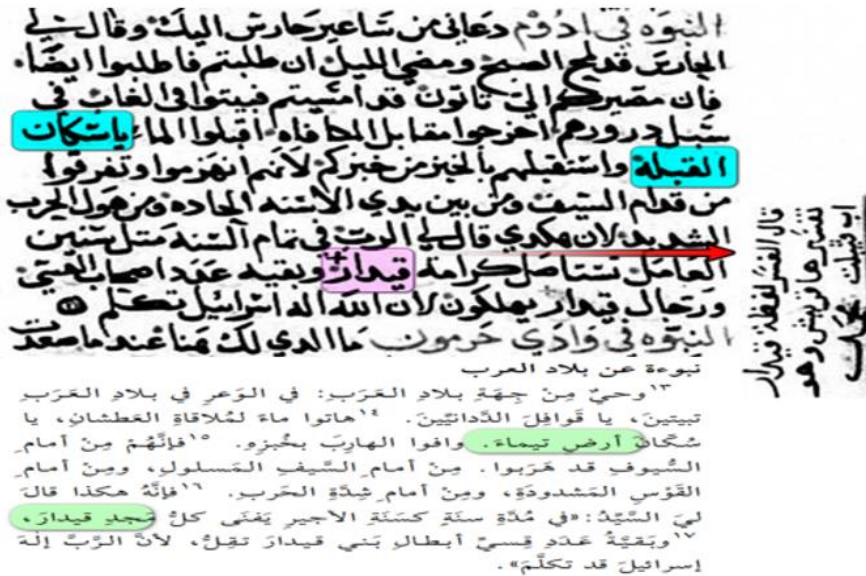 النبوه في ادوم دعاني من شاعير حارس اليك وقال لي
الحارس قد لمح الصبح ومضي الليل ان طلبتم فاطلبوا ايضا
فان مصيركم الي تاتون قد امسيتم فبيتوا في الغاب في
سبيل درورهم اخرجوا مقابل المكافاه اقبلوا الما ياسكان
القبلة واستقبلهم بالخبز من خبزكم لانهم انهزموا وتفرقوا
من قدام السيف ومن بين يدي الاسنه الحاده ومن هول الحرب
الشديد لان هكدي قال لي الرب في تمام السنه مثل سنين
العامل تستاصل كرامة قيدار وبقيه عدد اصحاب القسي
ورجال قيدار يهلكون لان الله اله اسرائيل تكلم
النبوه في وادي حرمون ما الدي لك هنا عند ما صعدت
قال المفسر لفظة قيدار
تفسيرها قريش وهو
نبوءة عن بلاد العرب
١٣وحيٌ مِنْ جِهَةِ بلادِ العَرَبِ: في الوَعرِ في بلادِ العَرَبِ
تبيتينَ، يا قَوافِلَ الدَّدانيّينَ. ١٤هاتوا ماءً لمُلاقاةِ العَطشانِ، يا
سُكّانَ أرضِ تيماءَ. وافوا الهارِبَ بخُبزِهِ. ١٥فإنَّهُمْ مِنْ أمامِ
السُّيوفِ قد هَرَبوا. مِنْ أمامِ السَّيفِ المَسلولِ، ومِنْ أمامِ
القَوْسِ المَشدودَةِ، ومِنْ أمامِ شِدَّةِ الحَربِ. ١٦فإنَّهُ هكذا قالَ
ليَ السَّيِّدُ: «في مُدَّةِ سنَةٍ كسَنَةِ الأجيرِ يَفنَى كلُّ مَجدِ قيدارَ،
١٧وبَقيَّةُ عَدَدِ قِسيِّ أبطالِ بَني قيدارَ تقِلُّ، لأنَّ الرَّبَّ إلهَ
إسرائيلَ قد تكلَّمَ».